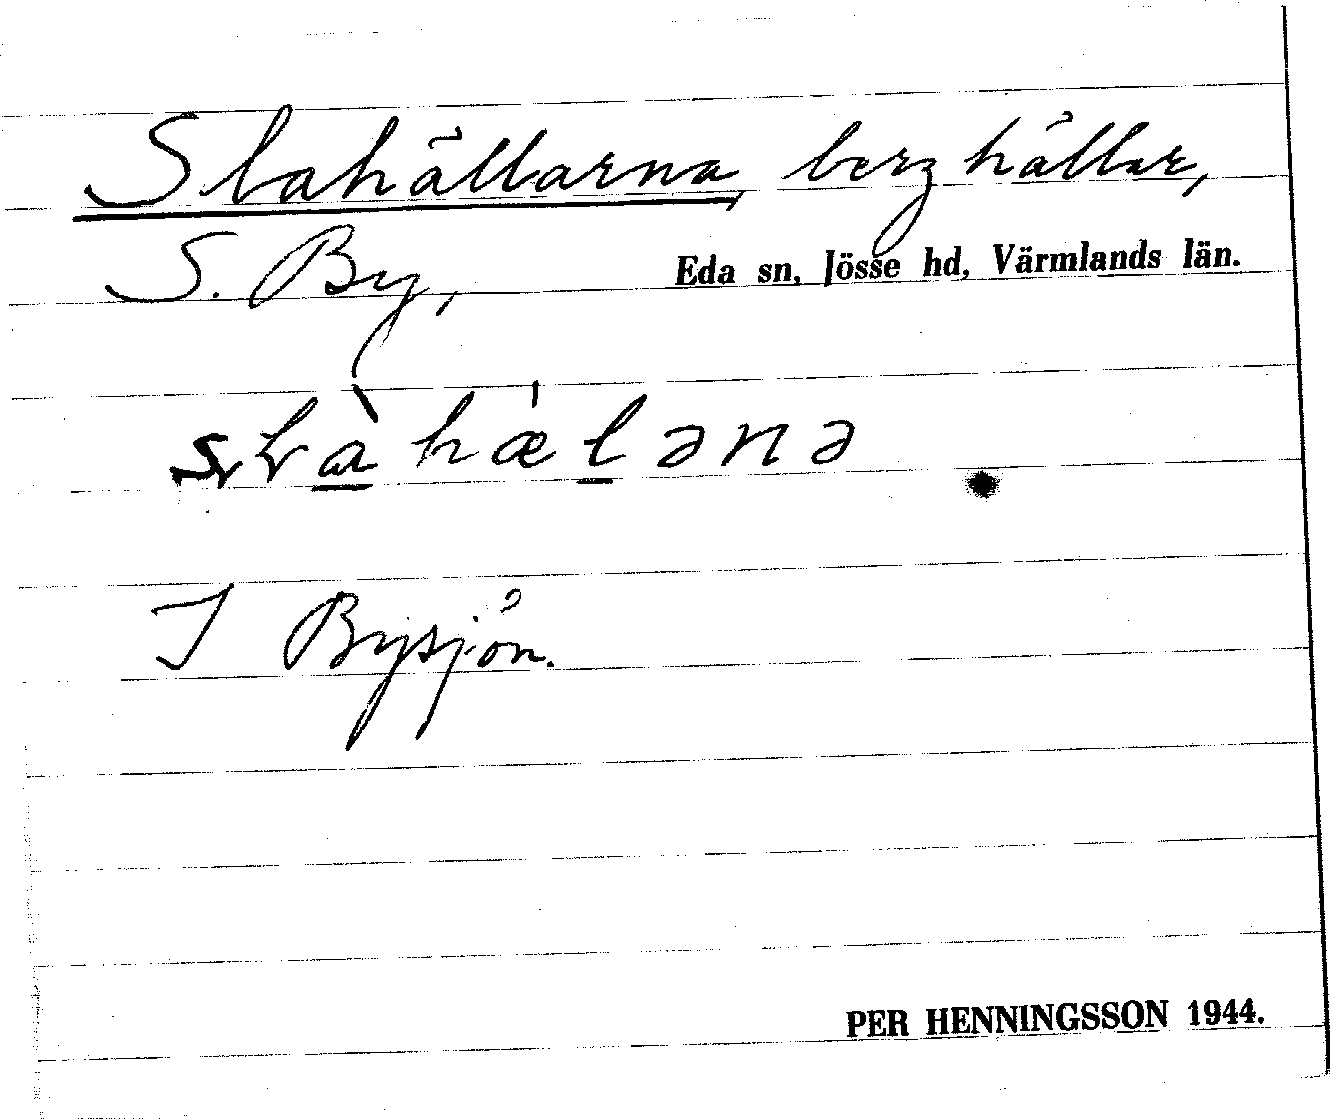 Slahällarna, berghällar,
S. By,
Eda sn, Jösse hd, Värmlands län.
I Bysjön.
PER HENNINGSSON 1944.